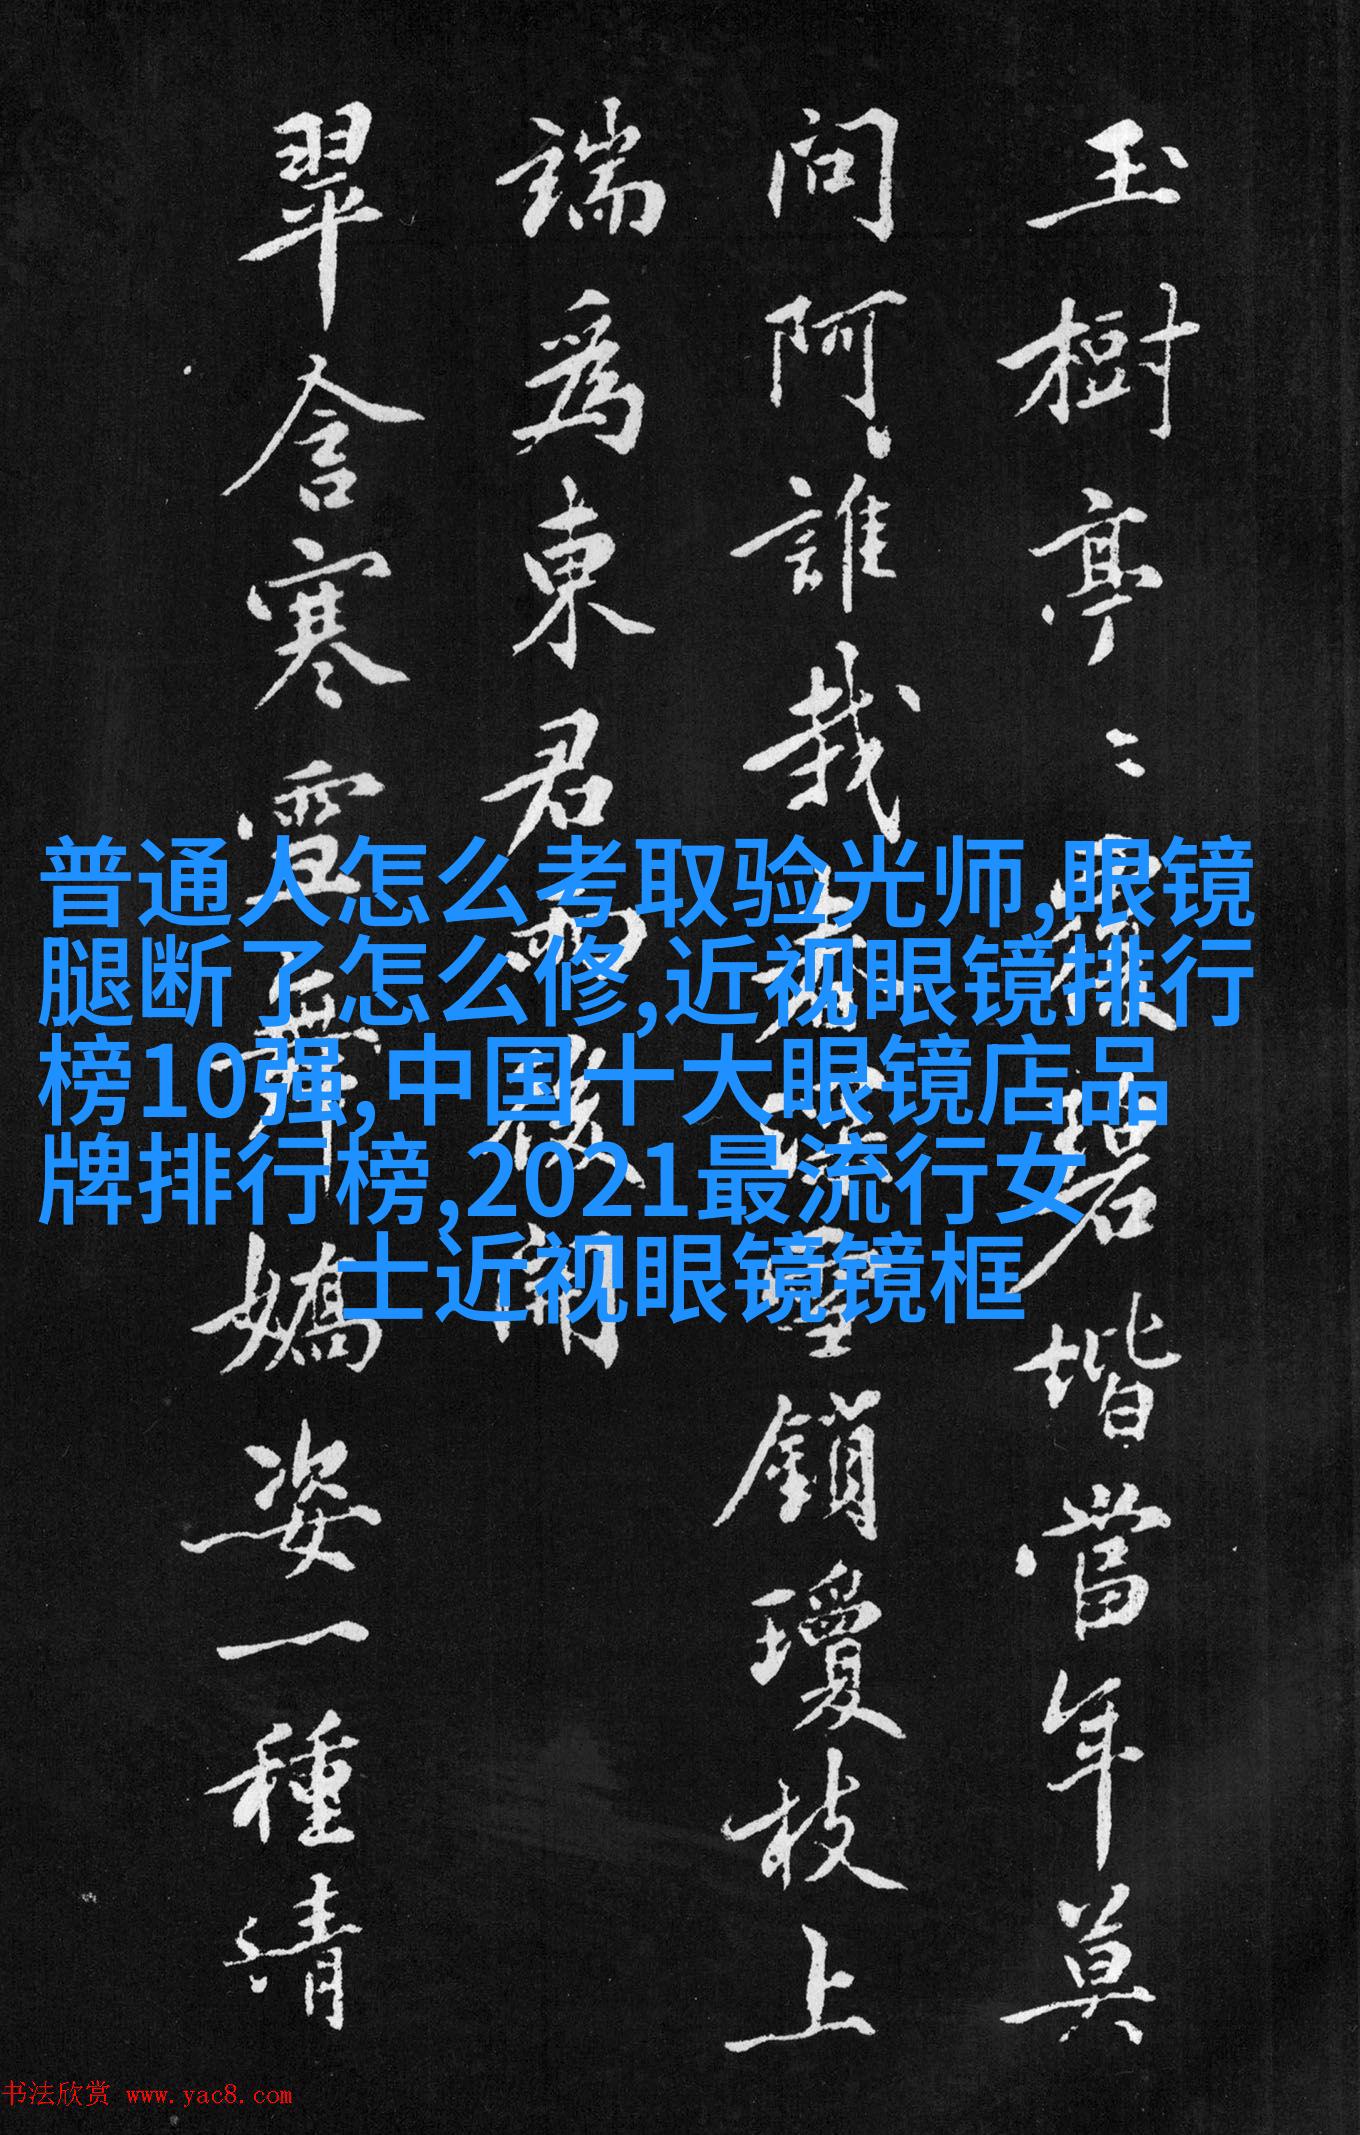 玉樹亭〻碧堦當年莫
問阿誰栽春深鎖瓊枝上
端為東君開
翠含寒嬌姿一種清
普通人怎么考取验光师,眼镜
腿断了怎么修,近视眼镜排行
榜10强,中国十大眼镜店品
牌排行榜,2021最流行女
士近视眼镜镜框
书法欣赏 www.yac8.com